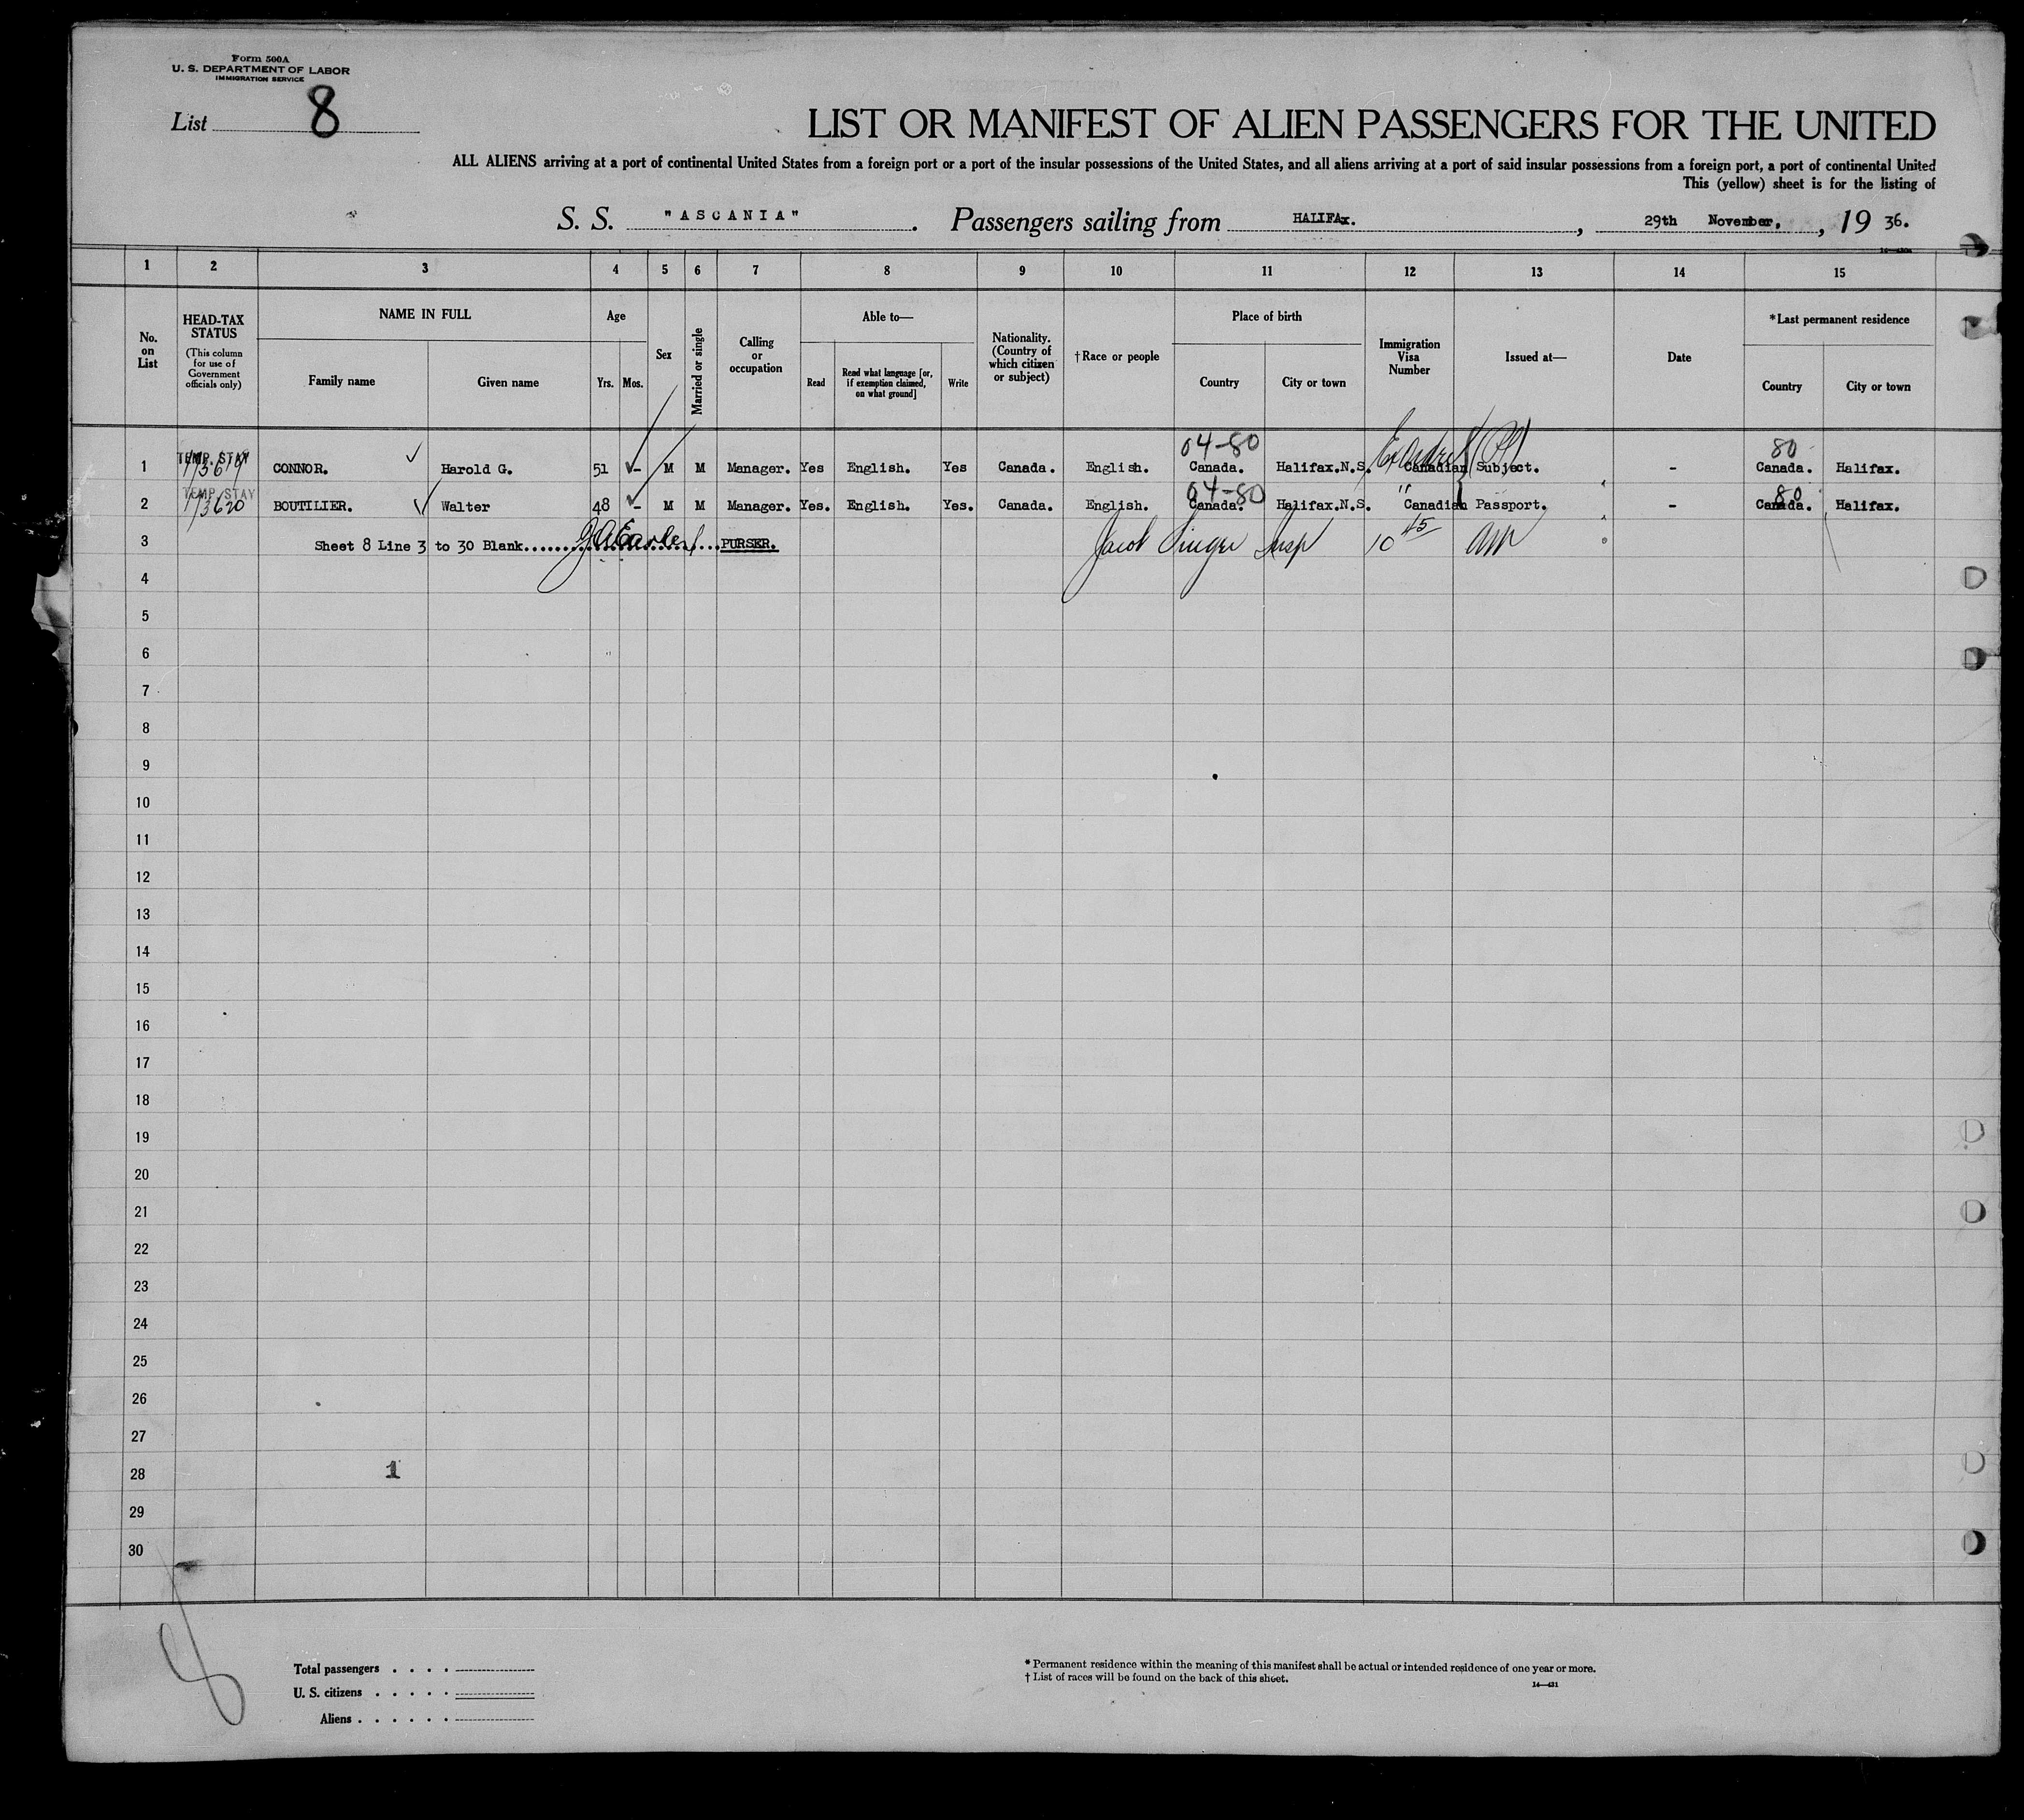 Form 500A
U. S. DEPARTMENT OF LABOR
IMMIGRATION SERVICE
List 8
LIST OR MANIFEST OF ALIEN PASSENGERS FOR THE UNITED
ALL ALIENS arriving at a port of continental United States from a foreign port or a port of the insular possessions of the United States, and all aliens arriving at a port of said insular possessions from a foreign port, a port of continental United
This (yellow) sheet is for the listing of
S. S. "ASCANIA". Passengers sailing from HALIFAx. , 29th November. , 19 36.
1 2 3 4 5 6 7 8 9 10 11 12 13 14 15
No. on List
HEAD-TAX STATUS
(This column for use of Government officials only)
NAME IN FULL
Family name Given name
Age
Yrs. Mos.
Sex
Married or single
Calling or occupation
Able to—
Read
Read what language [or, if exemption claimed, on what ground]
Write
Nationality. (Country of which citizen or subject)
†Race or people
Place of birth
Country City or town
Immigration Visa Number
Issued at—
Date
*Last permanent residence
Country City or town
04-80 80
TEMP. STAY
1 13619 CONNOR. Harold G. 51 - M M Manager. Yes English. Yes Canada. English. Canada. Halifax.N.S. Canadian Subject. - Canada. Halifax.
TEMP. STAY 04-80 " 80
2 13620 BOUTILIER. Walter 48 - M M Manager. Yes. English. Yes. Canada. English. Canada. Halifax.N.S. Canadian Passport. - Canada. Halifax.
3 Sheet 8 Line 3 to 30 Blank.....................PURSER. Jacob Singer Insp 10 45 AM
4
5
6
7
8
9
10
11
12
13
14
15
16
17
18
19
20
21
22
23
24
25
26
27
28 1
29
30
8
Total passengers . . . .
U. S. citizens . . . . .
Aliens . . . . . .
* Permanent residence within the meaning of this manifest shall be actual or intended residence of one year or more.
† List of races will be found on the back of this sheet.
14—431